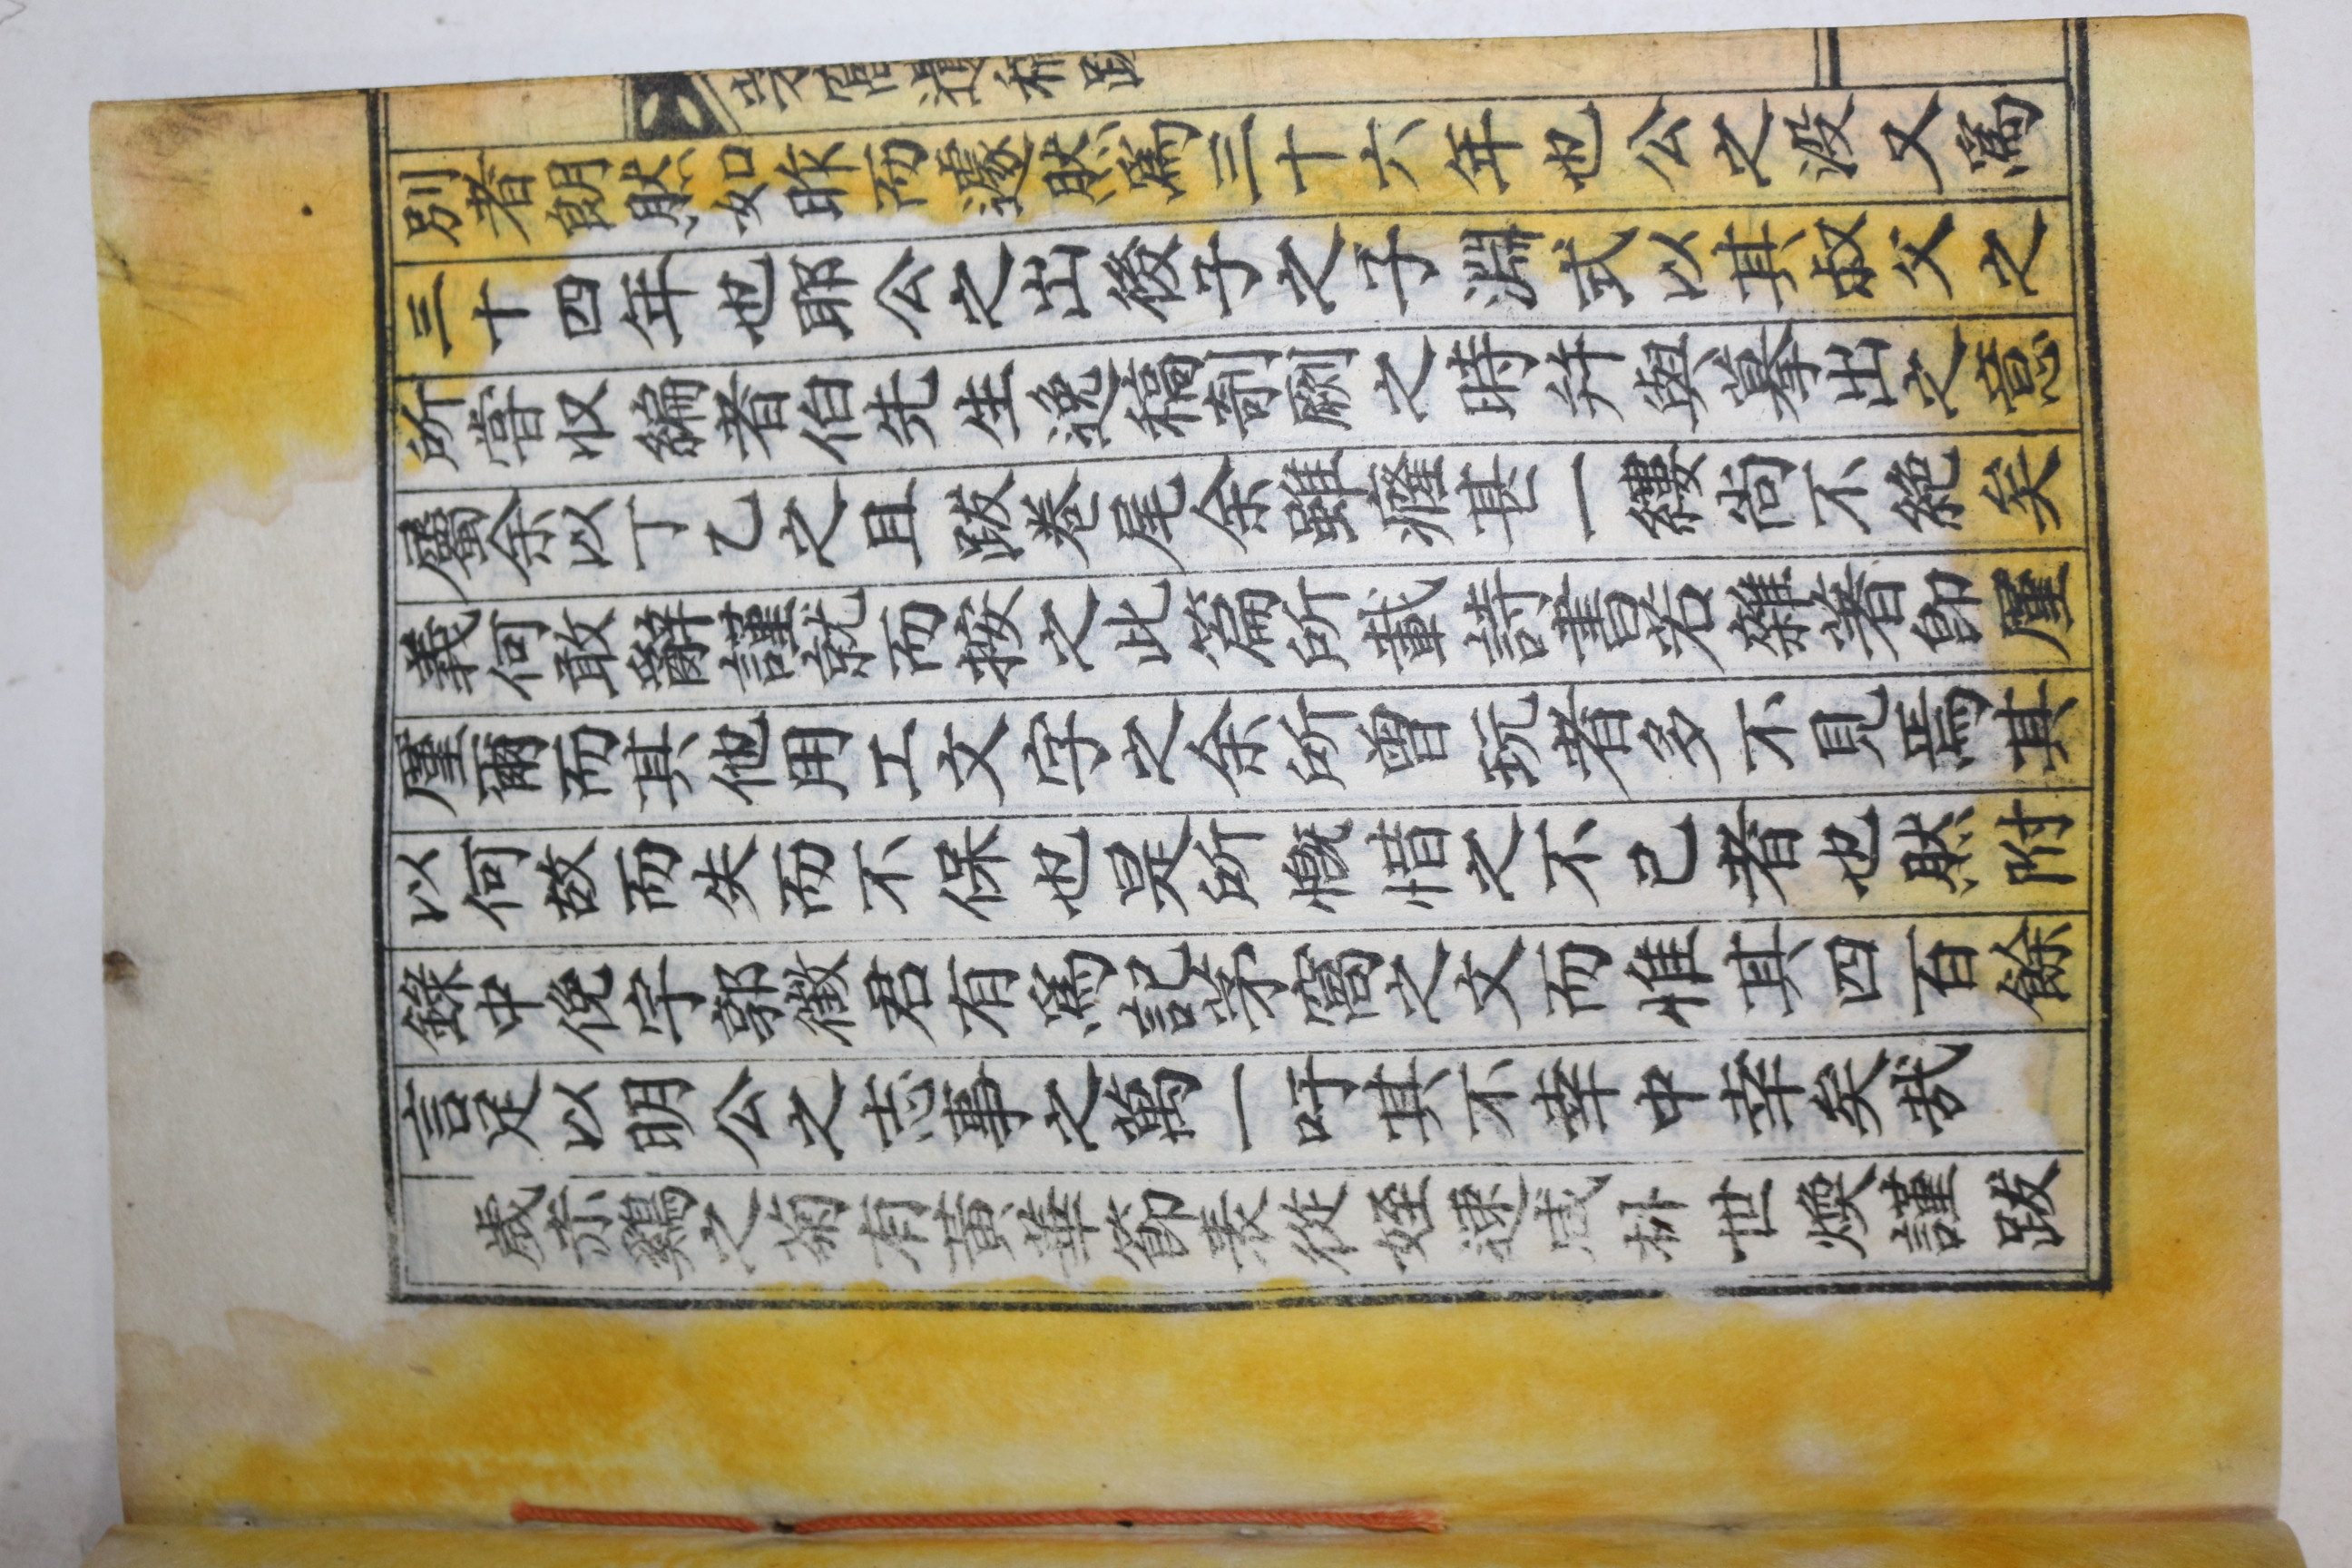 茅窩遺稿 跋
別者朗然如昨而邈然爲三十六年也公之沒又爲
三十四年也耶公之出後子之子淵式以其故父之
所嘗收編者伯先生逸稿剞劂之時幷與募出之意
屬余以丁乙之且跋卷尾余雖癃其一縷尙不絶矣
義何敢辭謹就而按之此篇所載詩書若雜著卽厪
厪爾而其他用工文字之余所曾玩者多不見焉其
以何故而失而不保也是所慨惜之不已者也然附
錄中俛宇郭徵君有爲記茅窩之文而惟其四百餘
言足以明公之志事之萬一吁其不幸中幸矣哉
歲赤鷄之菊有黃華節表從姪朴世煥謹跋